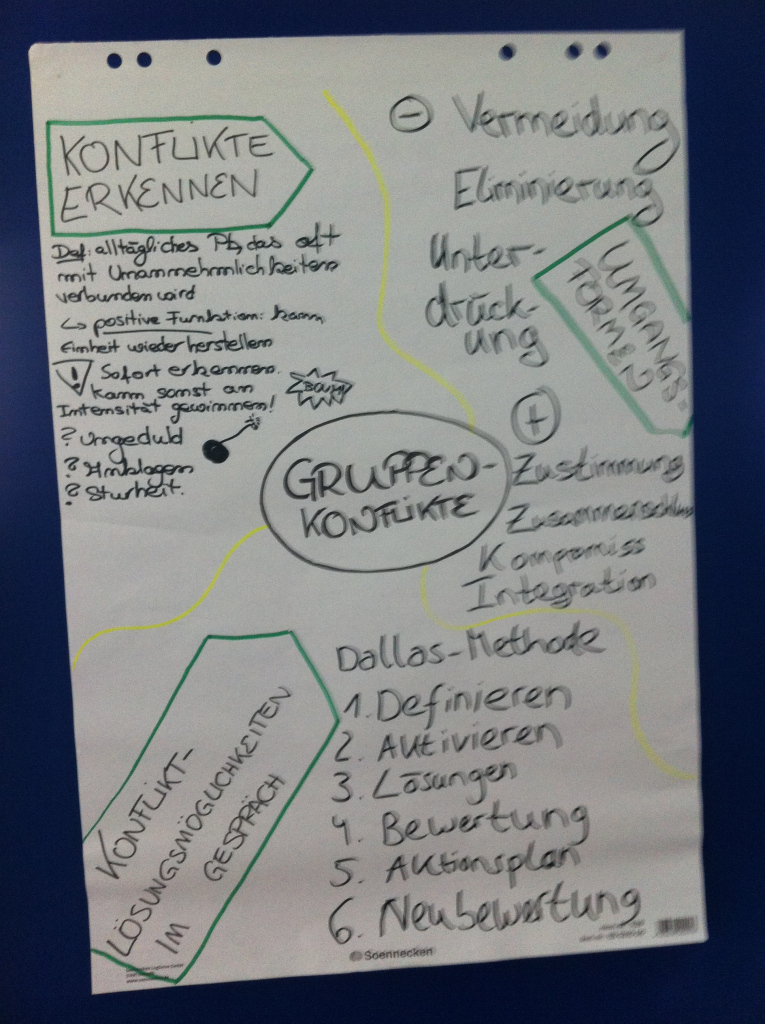 KONFLIKTE
ERKENNEN
Def: alltägliches Pb, das oft
mit Unannehmlichkeiten
verbunden wird
↳ positive Funktion: kann
Einheit wiederherstellen
! Sofort erkennen.
kann sonst an
Intensität gewinnen!
BOUM!
? Ungeduld
? Anklagen
? Sturheit.
GRUPPEN-
KONFLIKTE
⊖ Vermeidung
Eliminierung
Unter-
drück-
ung
UMGANGS-
FORMEN
⊕
Zustimmung
Zusammenschluss
Kompromiss
Integration
KONFLIKT-
LÖSUNGSMÖGLICHKEITEN
IM GESPRÄCH
Dallas-Methode
1. Definieren
2. Aktivieren
3. Lösungen
4. Bewertung
5. Aktionsplan
6. Neubewertung
Soennecken